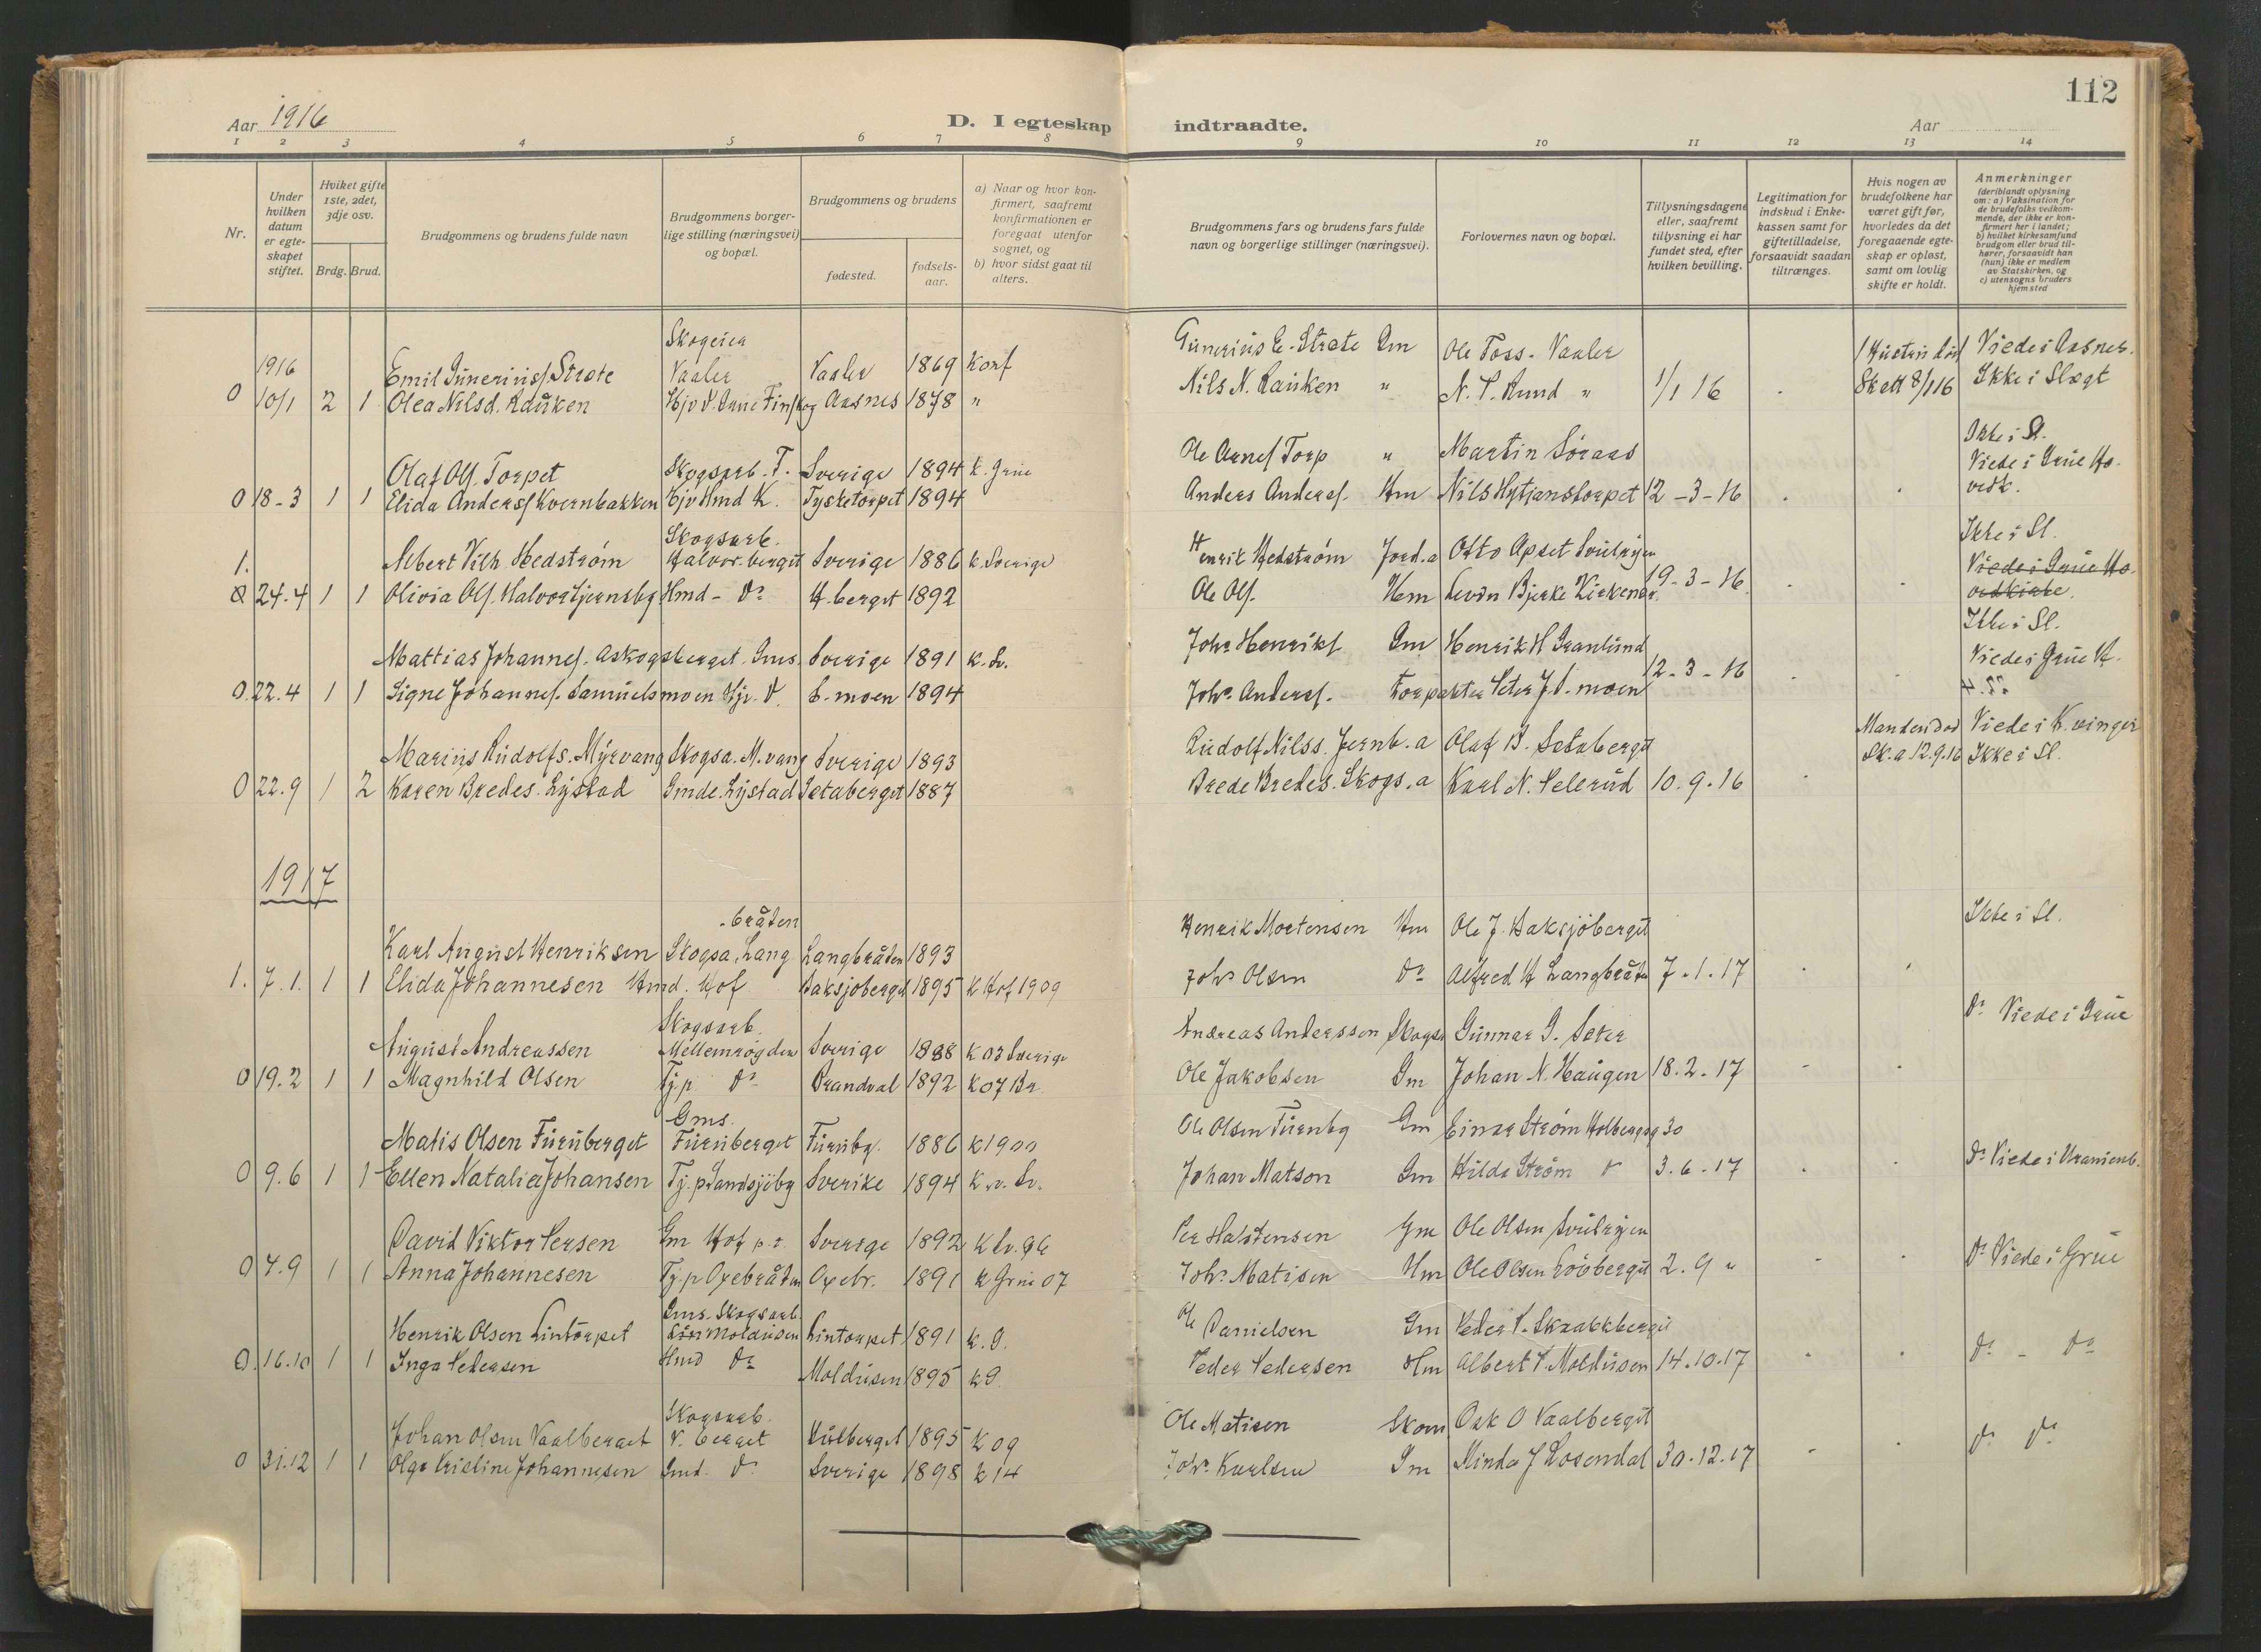 112
Aar 1916
D. I egteskap indtraadte.
Aar
1 2 3 4 5 6 7 8 9 10 11 12 13 14
Nr.
Under hvilken datum er egteskapet stiftet.
Hviket gifte 1ste, 2det, 3dje osv.
Brdg. Brud.
Brudgommens og brudens fulde navn
Brudgommens borgerlige stilling (næringsvei) og bopæl.
Brudgommens og brudens
fødested.
fødselsaar.
a) Naar og hvor konfirmert, saafremt konfirmationen er foregaat utenfor sognet, og
b) hvor sidst gaat til alters.
Brudgommens fars og brudens fars fulde navn og borgerlige stillinger (næringsvei).
Forlovernes navn og bopæl.
Tillysningsdagene eller, saafremt tillysning ei har fundet sted, efter hvilken bevilling.
Legitimation for indskud i Enkekassen samt for giftetilladelse, forsaavidt saadan tiltrænges.
Hvis nogen av brudefolkene har været gift før, hvorledes da det foregaaende egteskap er opløst, samt om lovlig skifte er holdt.
Anmerkninger (deriblandt oplysning om: a) Vaksination for de brudefolks vedkommende, der ikke er konfirmert her i landet; b) hvilket kirkesamfund brudgom eller brud tilhører, forsaavidt han (hun) ikke er medlem av Statskirken, og c) utensogns bruders hjemsted
Skogeier
1916 Emil Gunerius Strøte Vaaler Vaaler 1869 Konf Gunerius E. Strøte Gm Ole Foss. Vaaler Hustru død Viede i Aasnes.
0 10/1 2 1 Olea Nilsd. Rauken Aasnes 1878 " Nils N. Rauken " N. P. Rund " 1/1 16 8/1 16 Ikke i Slægt
Ikke i Sl.
Olaf Ols. Torpet Skogsarb. T. Sverige 1894 k. Grue Ole Arnes Torp " Martin Søraas Viede i Grue Ho-
0 18-3 1 1 Elida Anders Kvernbakken Hjv Hmd K. Tysketorpet 1894 Anders Anders. Hm Nils Hytjanstorpet 12-3-16 vedk.
Skogsarb. Ikke i Sl.
1. Albert Vilh. Hedstrøm Halvor.berget Sverige 1886 k. Sverige Henrik Hedstrøm Jord.a Otto Apset Viede i Grue Ho-
0 24.4 1 1 Olivia Ols. Halvorstjernsbg Hmd - do H.berget 1892 Ole Ols. Hm Bjerke 19-3-16 vedkirke.
Ikke i Sl.
Mattias Johannes. Askogsberget. Gms. Sverige 1891 k. Sv. Johs Henriks. Gm Henrik H Granlund Viede i Grue H.
0. 22.4 1 1 Signe Johannes. Samuelsmoen Hjv. S. S.moen 1894 Johs. Anders. Peter J. S.moen 12-3-16
Marius Rudolfs. Myrvang Skogsa. M.vang Sverige 1893 Rudolf Nilss. Jernb.a Olaf B. Setaberget Manden død Viede i K.vinger
0 22.9 1 2 Karen Bredes. Lystad Gmde. Lystad Setaberget 1887 Brede Bredes. Skogs.a Karl N. Pelerud 10.9.16 Sk.a 12.9.16 Ikke i Sl.
1917
-bråten Ikke i Sl.
Karl August Henriksen Skogsa. Lang Langbråten 1893 Henrik Mortensen Hm Ole J. Baksjöberget
1. 7.1. 1 1 Elida Johannesen Hmd. Hof Baksjoberget 1895 k Hof 1909 Johs Olsen do Alfred H Langbråten 7.1.17
Skogsarb.
August Andreassen Mellemrøgden Sverige 1888 k 03 Sverige Andreas Anderssen Skogsa Gunnar G. Seter do Viede i Grue
0 19.2 1 1 Magnhild Olsen Tj.p. do Brandval 1892 k 07 Br. Ole Jakobsen Gm Johan N. Haugen 18.2.17
Gms.
Matis Olsen Furuberget Furuberget Furubg. 1886 k 1900 Ole Olsen Furubg Gm Einar Strøm Holbergsg 30
0 9.6 1 1 Ellen Natalia Johansen Tj.p Sandsjöbg Sverike 1894 k. v. Sv. Johan Matson Gm Hilda Strøm do 3.6.17 do Viede i Uranienb.
David Viktor Persen Gm Hof Sverige 1892 k Sv. Per Halstensen Gm Ole Olsen
0 4.9 1 1 Anna Johannesen Tj.p Oxebråten Oxebr. 1891 k Grue 07 Johs. Matisen Hm Ole Olsen Lövberget 2.9 " do Viede i Grue
Gms. Skogsarb.
Henrik Olsen Lintorpet Moldusen Lintorpet 1891 k. G. Ole Danielsen Gm Peder P. Skrabkberget
0. 16.10 1 1 Inga Pedersen Hmd do Moldusen 1895 k G. Peder Pedersen Hm Albert P. Moldusen 14.10.17 do - do
Skogsarb.
Johan Olsen Vaalberget V.berget Kulberget 1895 k 09 Ole Matisen Skom. O Vaalberget
0 31.12 1 1 Olga Kristine Johannesen Gmd. do Sverige 1898 k 14 Johs. Karlsen Gm Minda J Rosendal 30.12.17 do do